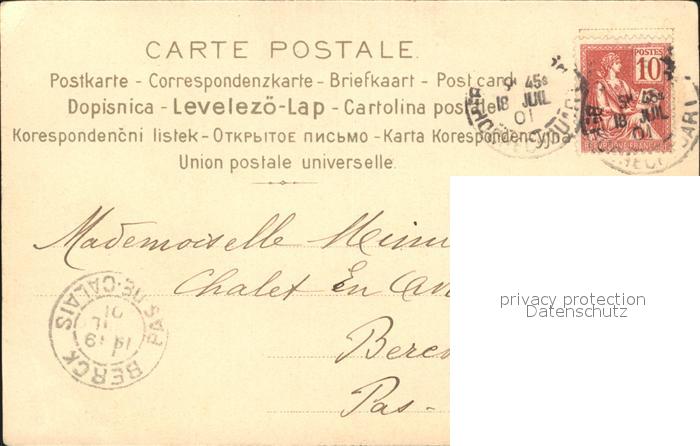 CARTE POSTALE.
Postkarte - Correspondenzkarte - Briefkaart - Post card
Dopisnica - Levelező-Lap - Cartolina postale
Korespondenční listek - Открытое письмо - Karta Korespondencyjna
Union postale universelle.
10
9 45s
18 JUIL
01
18 JUIL
01
REPUBLIQUE FRANÇAISE
Mademoiselle
Chalet En
Berck
Pas-
BERCK
PAS-DE-CALAIS
01
privacy protection
Datenschutz